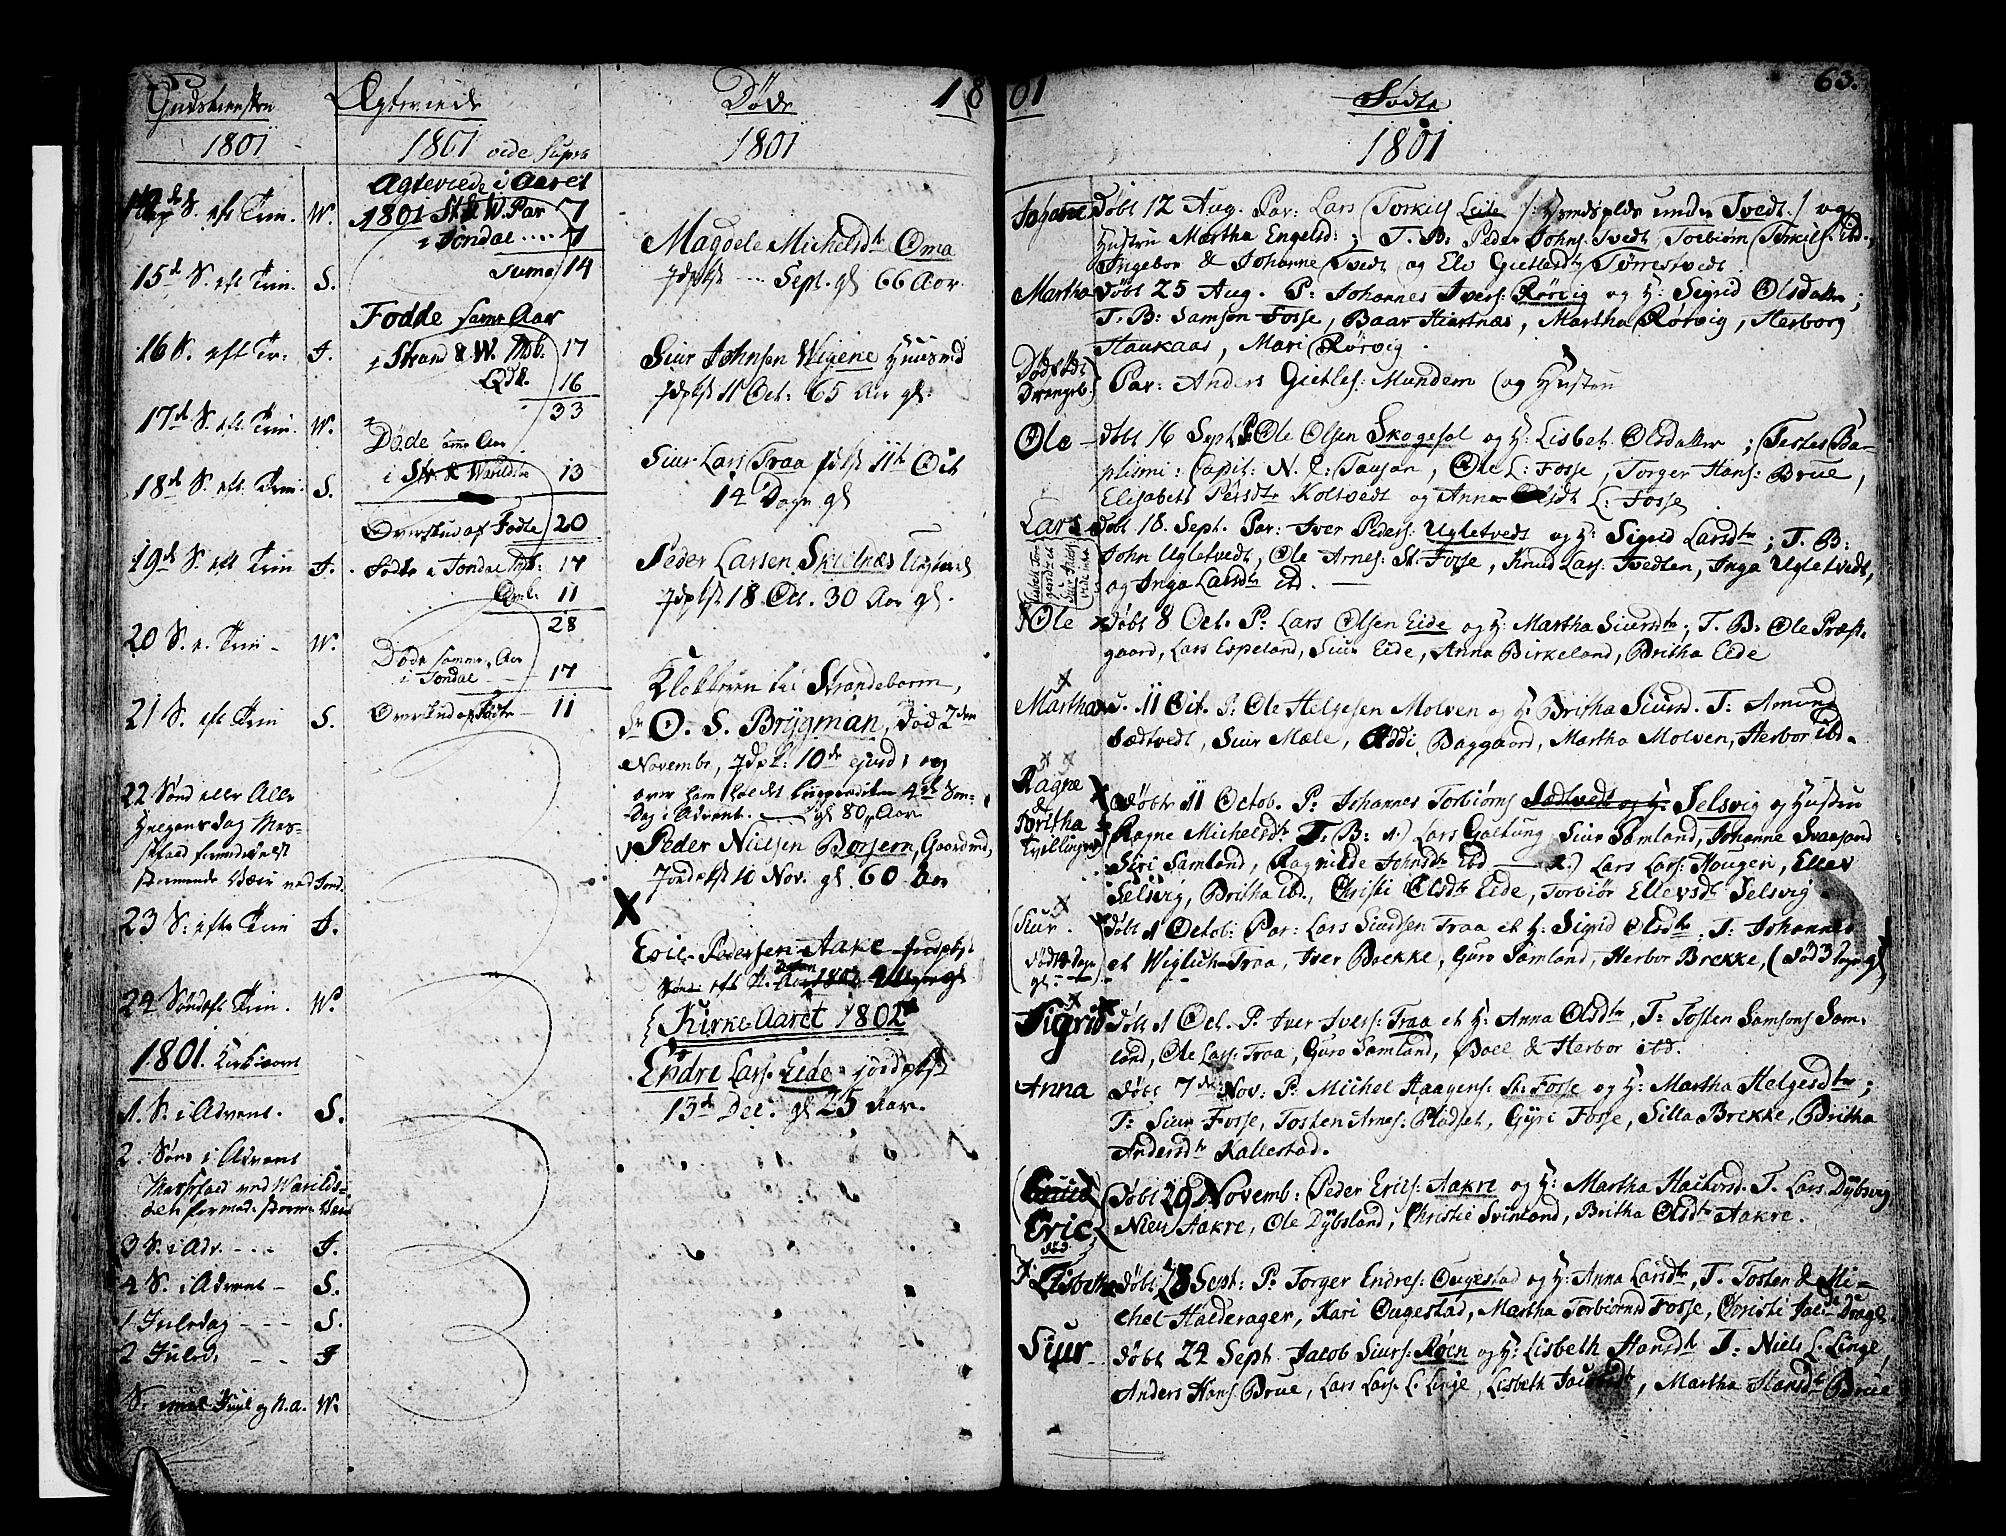 Gudstienesten
1801
S. eft Trin. W.
15de S. eft Trin. S.
16 S. eft Tr: J.
17de S. eft Trin. W.
18de S. eft. Trin. S.
19de S. eft Trin J.
20 S. e. Trin - W.
21 S. eft Trin S.
22 Sønd eller Alle
Helgensdag Mes-
23 S: efter Trin J.
24 Søndeft Trin. W.
1801. Kirkeaaret
1. S. i Advent. S.
2. Sønd i Advent
Messefald ved Warilds-
3 S. i Adv. - - - J.
4 S. i Advent - S.
1 Juledag - - - S.
2 Juled. - - J
S. imel Juul og N.a. W.
Ægteviede
1801 vide supra
Ægteviede i Aaret
1801 St. & W. Par 7
i Jondal .... 7
Suma 14
Fødde samme Aar
i Strand & W. Msk: 17
Qdk. 16
33
Døde samme Aar
i Str. & Warildsø 13
Overskud af Fødte 20
Fødte i Jondal Msk: 17
Qvk: 11
28
Døde samme Aar
i Jondal - - 17
Overskud af Fødte - 11
Døde 18
1801
Magdele Michelsdtr Oma
Jdptst --- Sept. gl 66 Aar.
Siur Johnsen Wigene Huusmd
Jdptst 11 Oct: 65 Aar gl:
Siur Lars: Traa Jdtst 11te Oct
14 Dage gl
Peder Larsen Skielnæs
Jdptst 18 Oct. 30 Aar gl.
Klokkeren til Strandebarm,
O. S. Brygman, død 2den
Novembr, Jdpt: 10de ejusd: og
over ham holdt Liigprædiken 4de Søn-
dag i Advent. - gl 80 Aar
Peder Nielsen Borsem, Gaardmd,
Jordptst 10 Nov. gl 60 Aar
X
Eric Pedersen Aakre jordptst
{Kirke-Aaret 1802
Endre Lars. Eide jordptst
13de Dec. gl 25 Aar.
01 63.
Fødte
1801
Johanne Døbt 12 Aug. Par: Lars Torkils Leite /: Huusplds under Tvedt./ og
Hustru Martha Engelsd: ; T. B: Peder Johns: Tvedt, Torbiørn Torkils: ibd.,
Ingebor & Johanne Tvedt og Elv Gietlesdtr Tørrestvedt.
Martha døbt 25 Aug. P: Johannes Ivers: Rørvig og H: Sigrid Olsdatter;
T. B: Samson Fosse, Baar Hiartnæs, Martha Rørvig, Herborg
Haukaas, Mari Rørvig.
Dødfødt
Drengeb. Par: Anders Gietles: Mundem og Hustru
Ole døbt 16 Sept. P: Ole Olsen Skogesol og H: Lisbet Olsdatter; (Testes Ba-
ptismi: Capit: N. C: Tausan, Ole L: Fosse, Torger Hans: Brue,
Elisabeth Persdtr Koltvedt og Anna Olsdt L: Fosse
Lars døbt 18. Sept. Par: Iver Peders: Ugletvedt og H: Sigrid Larsdtr; T. B:
John Ugletvedt, Ole Arnes: St: Fosse, Knud Lars: Tvedten, Inga Ugletvedt,
og Inga Larsdtr ibd.
Ole døbt 8 Oct. P: Lars Olsen Eide og H: Martha Siursdtr; T. B: Ole Præst-
gaard, Lars Espeland, Siur Eide, Anna Birkeland, Britha Eide
Martha d. 11 Oct. P: Ole Helgesen Molven og H: Britha Siursd. T: Amund
Sædtvedt, Siur Mæle, Oddi Baggaard, Martha Molven, Herbor ibd.
Ragne
&
Britha
Tvillinger døbte 11 Octob. P: Johannes Torbiørns Sædtvedt og H: Selsvig og Hustru
Ragne Michelsdtr T: B: 1.) Lars Galtung, Siur Samland, Johanne Svaasand
Siri Samland, Ragnilde Johnsdtr ibd - 2.) Lars Lars: Hougen, Ellev
Selsvig, Britha ibd., Christi Olsdtr Eide, Torbiør Ellevsdt Selsvig
Siur. døbt 1 Octob: Par: Lars Siursen Traa et H: Sigrid Olsdtr. T: Johannes
et Wiglich Traa, Iver Brekke, Guro Samland, Herbor Brekke,
Sigrid døbt 1 Oct. P: Iver Ivers: Traa et H: Anna Olsdtr, T: Tosten Samsons Sam-
land, Ole Lars: Traa, Guro Samland, Boel & Herbor ibd.
Anna døbt 7de Nov: P: Michel Haagens: St: Fosse og H: Martha Helgesdtr;
T: Siur Fosse, Tosten Arnes: Pladset, Gyri Fosse, Silla Brekke, Britha
Andersdtr Kallestad.
Knud
Eric døbt 29 Novemb: Peder Erics: Aakre og H: Martha Haaversd. T. Lars Dybsvig
Niels Aakre, Ole Dybsland, Christie Svinland, Britha Olsdtr Aakre.
Lisbeth døbt 18 Sept: P: Torger Endres: Ougestad og H: Anna Larsdtr, T. Tosten & Mi-
chel Halderager, Kari Ougestad, Martha Torbiørnsd Fosse, Christi
Siur døbt 24 Sept. Jacob Siurs: Røen og H: Lisbeth Hansdtr T: Niels L. Linge
Anders Hans: Brue, Lars Lars. L. Linge, Lisbeth, Martha Hansdtr Brue